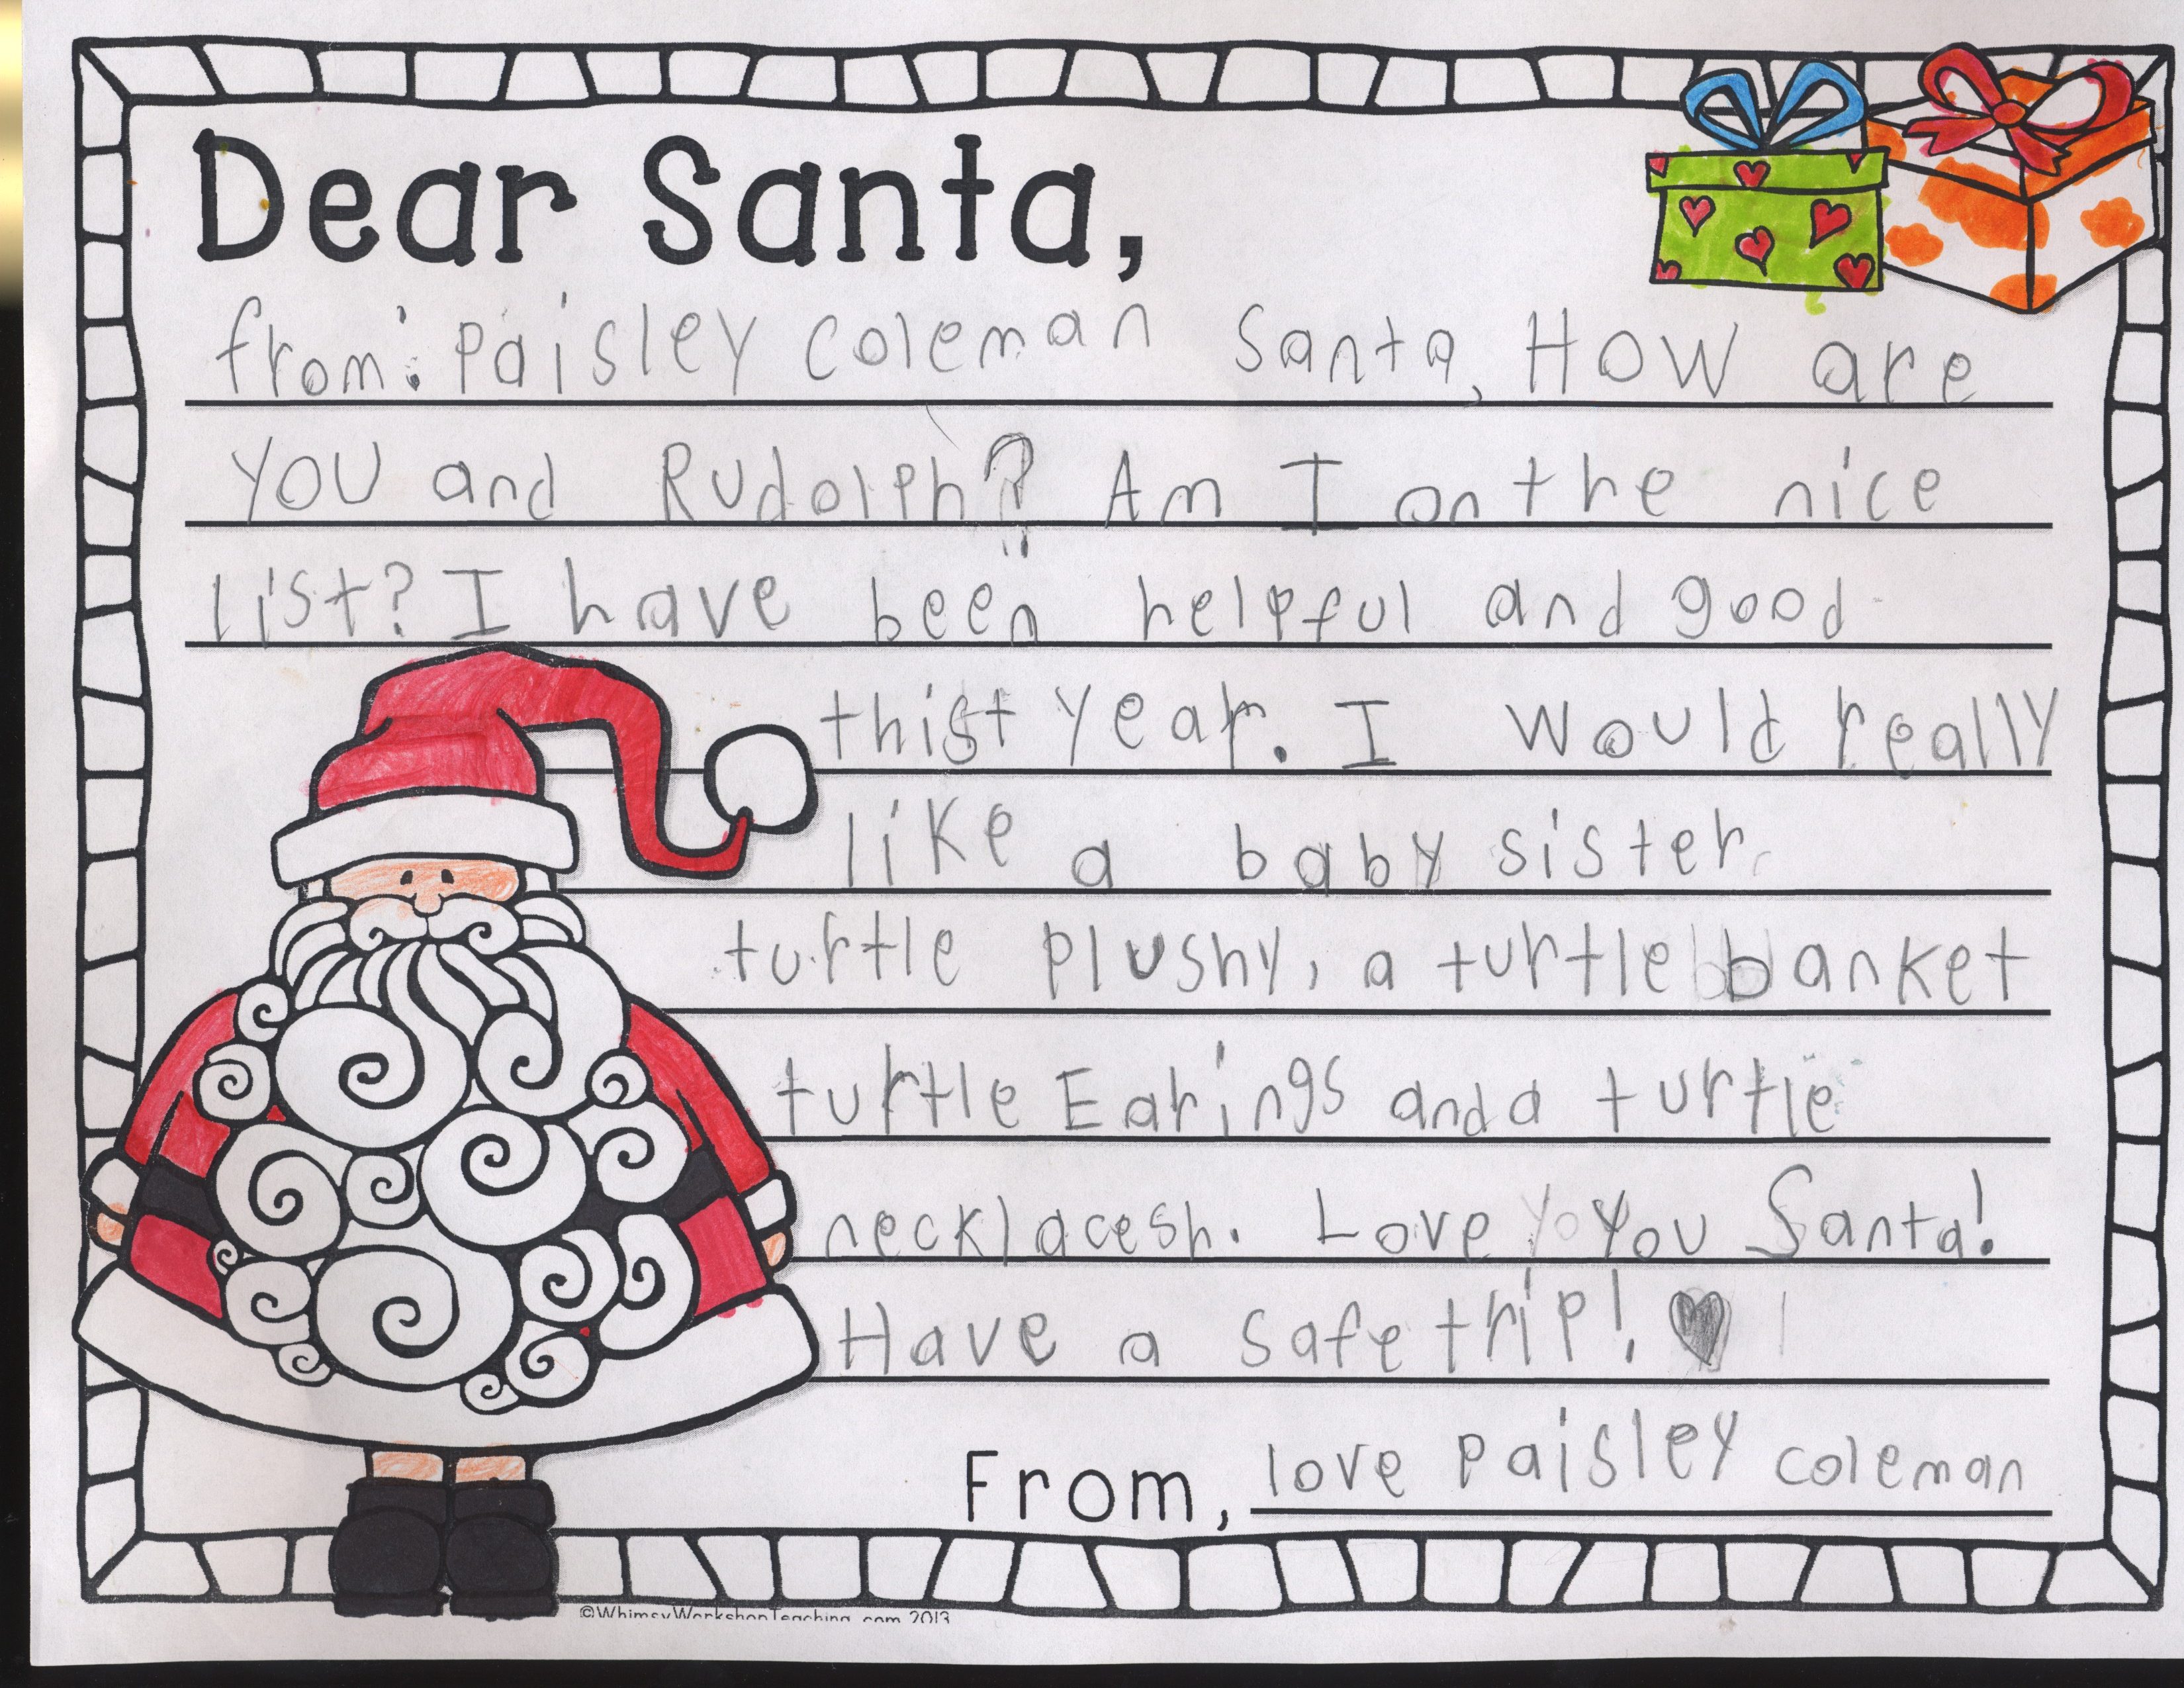 Dear Santa,
from: Paisley Coleman Santa, How are
you and Rudolph? Am I on the nice
list? I have been helpful and good
thist year. I would really
like a baby sister,
turtle plushy, a turtle banket
turtle Earings and a turtle
necklacesh. Love yo you Santa!
Have a safe trip! ♥
From, love Paisley coleman
©WhimsyWorkshopTeaching.com 2013